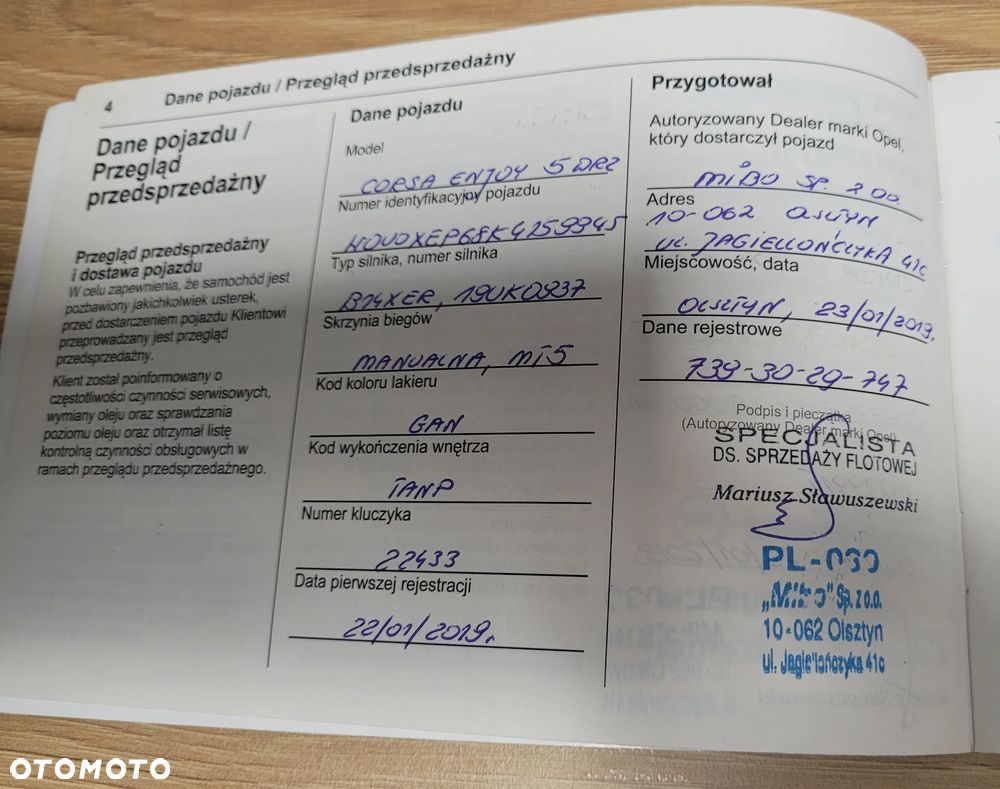 4
Dane pojazdu / Przegląd przedsprzedażny
Dane pojazdu /
Przegląd
przedsprzedażny
Przegląd przedsprzedażny
i dostawa pojazdu
W celu zapewnienia, że samochód jest
pozbawiony jakichkolwiek usterek,
przed dostarczeniem pojazdu Klientowi
przeprowadzany jest przegląd
przedsprzedażny.
Klient został poinformowany o
częstotliwości czynności serwisowych,
wymiany oleju oraz sprawdzania
poziomu oleju oraz otrzymał listę
kontrolną czynności obsługowych w
ramach przeglądu przedsprzedażnego.
Dane pojazdu
Model
CORSA ENJOY 5 DRZ
Numer identyfikacyjny pojazdu
W0V0XEP68K4259945
Typ silnika, numer silnika
B14XER, 19UK0937
Skrzynia biegów
MANUALNA, MT5
Kod koloru lakieru
GAN
Kod wykończenia wnętrza
TANP
Numer kluczyka
22433
Data pierwszej rejestracji
22/01/2019r.
Przygotował
Autoryzowany Dealer marki Opel,
który dostarczył pojazd
MIBO SP. Z OO.
Adres
10-062 OLSZTYN
UL. JAGIELLOŃCZYKA 41C
Miejscowość, data
OLSZTYN, 23/01/2019r.
Dane rejestrowe
739-30-29-747
Podpis i pieczątka
(Autoryzowany Dealer marki Opel)
SPECJALISTA
DS. SPRZEDAŻY FLOTOWEJ
Mariusz Sławuszewski
PL-030
Sp. z o.o.
10-062 Olsztyn
ul. Jagiellończyka 41c
OTOMOTO